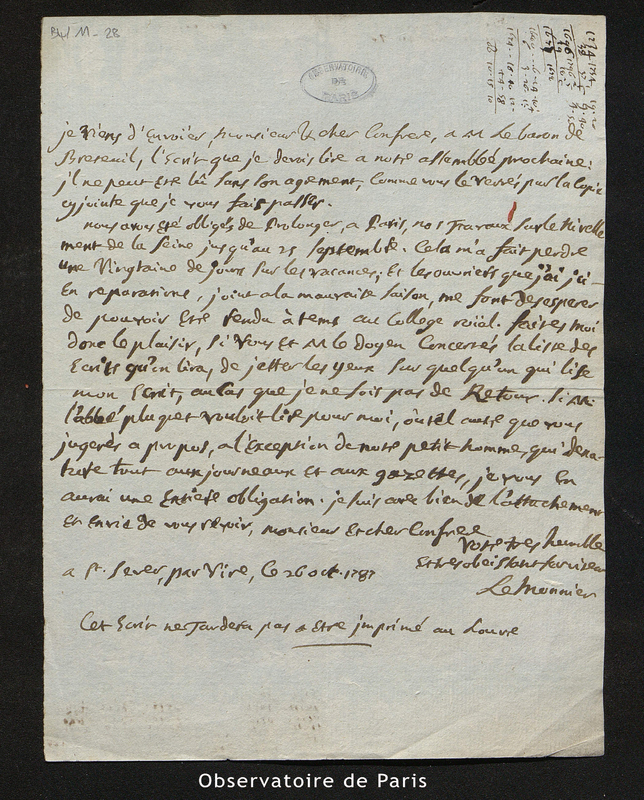 B4/11-28
OBSERVATOIRE
DE
PARIS
je viens d'Envoier, Monsieur & cher Confrere, a M Le baron de
Breteuil, l'Ecrit que je devois lire a notre assemblée prochaine:
jl ne peut Etre lû sans son agement, Comme vous le verrés par la Copie
cyjointe que je vous fais passer.
nous avons été obligés de Prolonger, a Paris, nos Travaux sur le Nivelle
ment de la Seine jusqu'au 25 septembre. Cela m'a fait perdre
une Vingtaine de jours sur les vacances; Et les ouvriers que j'ai jci
En reparations, joint a la mauvaise saison, me font desesperer
de pouvoir Etre rendu à tems au College roïal. faites moi
donc le plaisir, si Vous et M le doyen Concertés la liste des
Ecrits qu'on lira, de jetter les yeux sur quelqu'un qui lise
mon Ecrit, au cas que je ne sois pas de Retour. si M.
l'abbé pluquet vouloit lire pour moi, ou tel autre que vous
jugerés a propos, a l'Exception de notre petit homme, qui dena-
ture tout aux journeaux Et aux gazettes, je vous En
aurai une Entiere obligation. je suis avec bien de l'attachement
Et Envie de vous revoir, monsieur Et cher Confrere
Votre tres humble
Et tres obeissant serviteur
Le Monnier
a St. Sever, par Vire, le 26 oct. 1787
Cet Ecrit ne Tardera pas a Etre jmprimé au Louvre
Observatoire de Paris